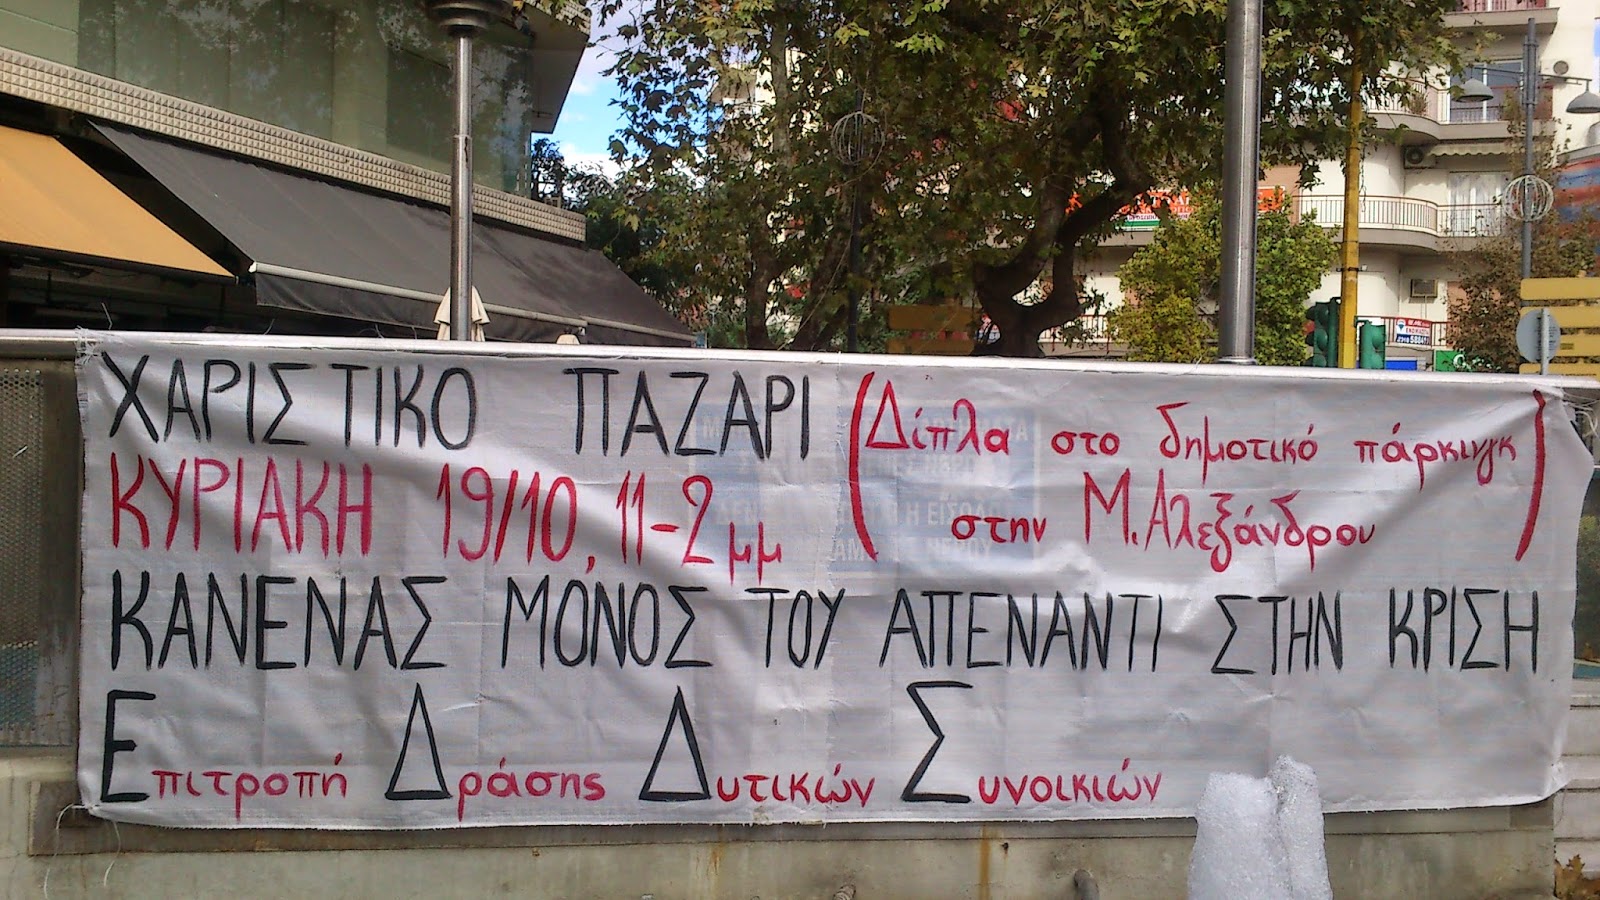 ΧΑΡΙΣΤΙΚΟ ΠΑΖΑΡΙ (Δίπλα στο δημοτικό πάρκινγκ
ΚΥΡΙΑΚΗ 19/10, 11-2 μμ στην Μ.Αλεξάνδρου)
ΚΑΝΕΝΑΣ ΜΟΝΟΣ ΤΟΥ ΑΠΕΝΑΝΤΙ ΣΤΗΝ ΚΡΙΣΗ
Επιτροπή Δράσης Δυτικών Συνοικιών